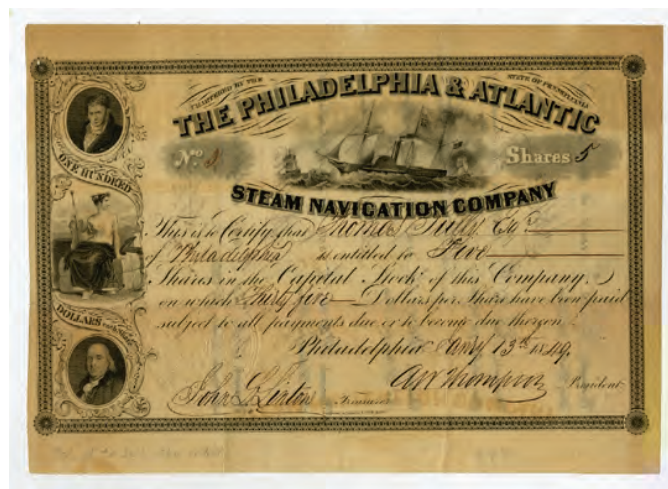 CHARTERED BY THE STATE OF PENNSYLVANIA
THE PHILADELPHIA & ATLANTIC
No. Shares 5
STEAM NAVIGATION COMPANY
ONE HUNDRED
DOLLARS EACH SHARE
This is to Certify that Thomas Sully Esqr.
of Philadelphia is entitled to Five
Shares in the Capital Stock of this Company,
on which Thirty five Dollars per Share have been paid
subject to all payments due or to become due thereon.
Philadelphia Jany 13th 1849.
John G. Linton Treasurer A W Thompson President